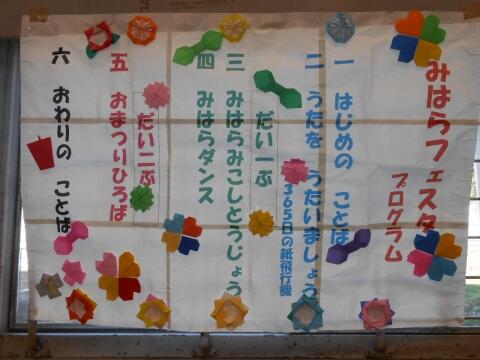 みはらフェスタ
プログラム
一 はじめの ことば
二 うたを うたいましょう
365日の紙飛行機
だい一ぶ
三 みはらみこしとうじょう
四 みはらダンス
だい二ぶ
五 おまつりひろば
六 おわりの ことば